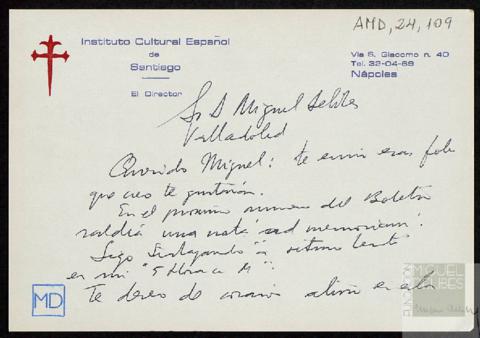 AMD, 24, 109
Instituto Cultural Español
de
Santiago
El Director
Via S. Giacomo n. 40
Tel. 32-04-68
Nápoles
Sr D Miguel Delibes
Valladolid
Querido Miguel: te envío esas foto
que creo te gustarán.
En el próximo número del Boletín
saldrá una nota "ad memoriam".
Sigo trabajando a ritmo lento
en mi "5 Horas
Te deseo de corazón
MD
FUNDACIÓN
MIGUEL
DELIBES